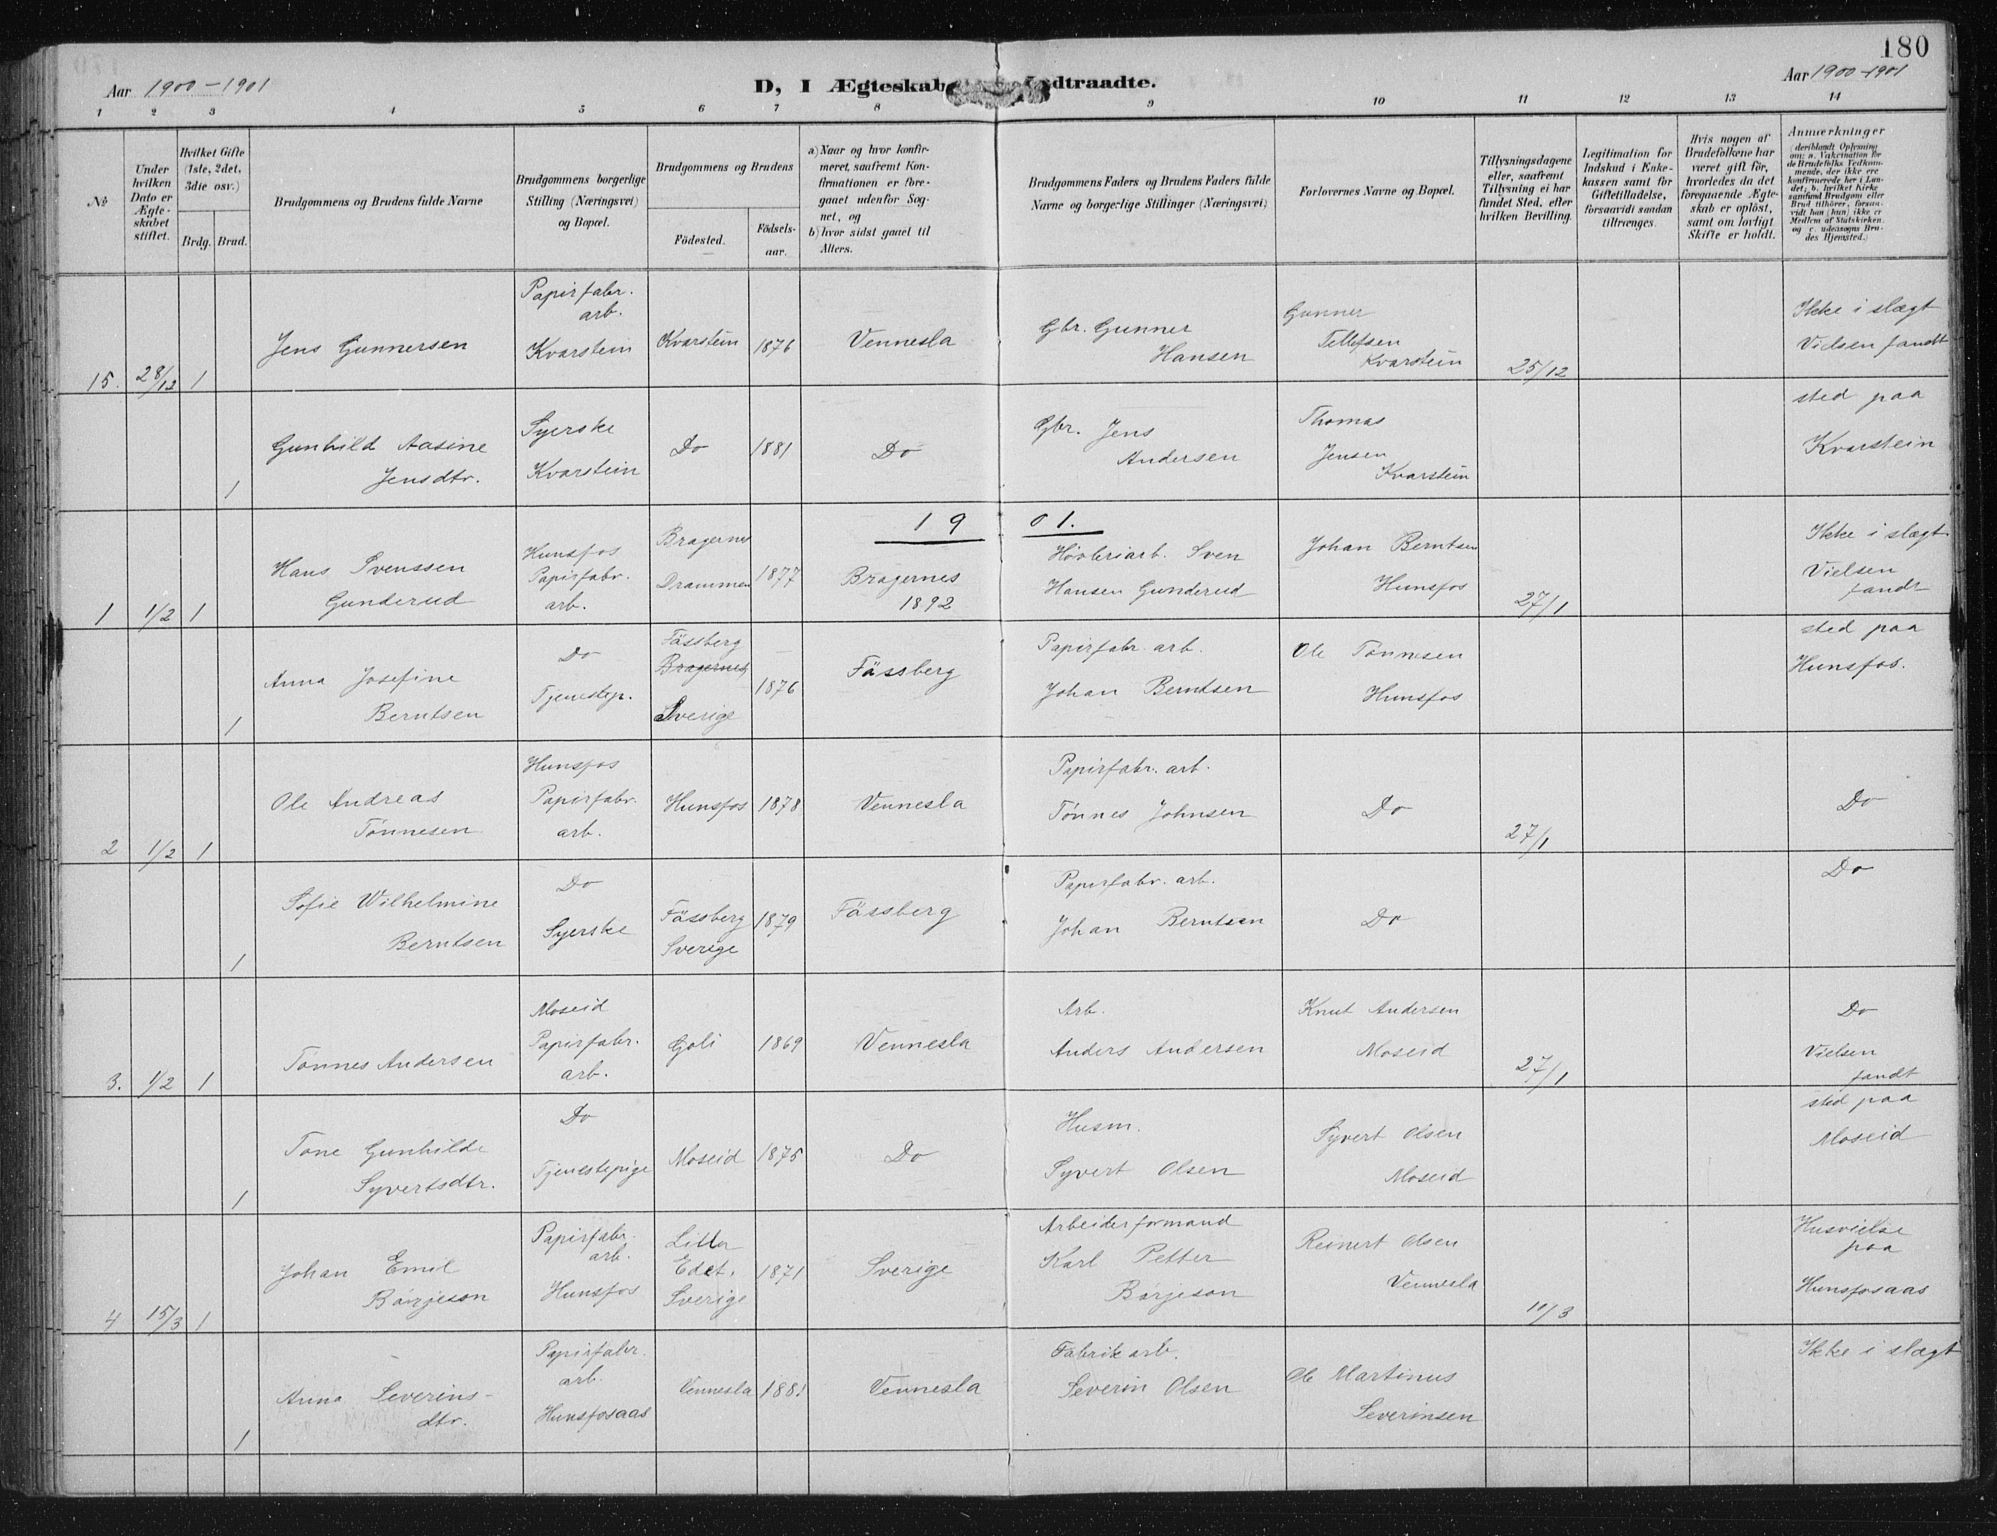 180
Aar 1900-1901
D, I Ægteskab dtraadte.
Aar 1900-1901
1 2 3 4 5 6 7 8 9 10 11 12 13 14
№
Under hvilken Dato er Ægteskabet stiftet.
Hvilket Gifte (1ste, 2det, 3die osv.)
Brdg. Brud.
Brudgommens og Brudens fulde Navne
Brudgommens borgerlige Stilling (Næringsvei) og Bopæl.
Brudgommens og Brudens
Fødested.
Fødselsaar.
a) Naar og hvor konfirmeret, saafremt Konfirmationen er foregaaet udenfor Sognet, og
b) hvor sidst gaaet til Alters.
Brudgommens Faders og Brudens Faders fulde Navne og borgerlige Stillinger (Næringsvei)
Forlovernes Navne og Bopæl.
Tillysningsdagene eller, saafremt Tillysning ei har fundet Sted, efter hvilken Bevilling.
Legitimation for Indskud i Enkekassen samt for Giftetilladelse, forsaavidt saadan tiltrænges.
Hvis nogen af Brudefolkene har været gift før, hvorledes da det foregaaende Ægteskab er opløst, samt om lovligt Skifte er holdt.
Anmærkninger
(deriblandt Oplysning om: a. Vakcination for de Brudefolks Vedkommende, der ikke ere konfirmerede her i Landet; b. hvilket Kirkesamfund Brudgom eller Brud tilhører, forsaavidt han (hun) ikke er Medlem af Statskirken, og c. udensogns Brudes Hjemsted.)
15. 28/12 1
Jens Gunnersen
Papirfabr. arb. Kvarstein
Kvarstein
1876
Vennesla
Gbr. Gunner Hansen
Gunner Tellefsen Kvarstein
25/12
Ikke i slægt
Vielsen fandt
1
Gunhild Aasine Jensdtr.
Syerske Kvarstein
Do
1881
Do
Gbr. Jens Andersen
Thomas Jensen Kvarstein
sted paa
Kvarstein
1901.
1 1/2 1
Hans Svenssen Gunderud
Hunsfos Papirfabr. arb.
Bragernes Drammen
1877
Bragernes 1892
Høvleriarb. Sven Hansen Gunderud
Johan Berntsen Hunsfos
27/1
Ikke i slægt
Vielsen fandt
1
Anna Josefine Berntsen
Do Tjenestep.
Fässberg Bragernes Sverige
1876
Fässberg
Papirfabr. arb. Johan Berntsen
Ole Tønnesen Hunsfos
sted paa
Hunsfos.
2 1/2 1
Ole Andreas Tønnesen
Hunsfos Papirfabr. arb.
Hunsfos
1878
Vennesla
Papirfabr. arb. Tønnes Johnsen
Do
27/1
Do
1
Sofie Wilhelmine Berntsen
Do Syerske
Fässberg Sverige
1879
Fässberg
Papirfabr. arb. Johan Berntsen
Do
Do
3. 1/2 1
Tønnes Andersen
Moseid Papirfabr. arb.
Goli
1869
Vennesla
Arb. Anders Andersen
Knut Andersen Moseid
27/1
Do
Vielsen fandt
1
Tone Gunhilde Syvertsdtr.
Do Tjenestepige
Moseid
1875
Do
Husm. Syvert Olsen
Syvert Olsen Moseid
sted paa
Moseid
4 15/3 1
Johan Emil Börjeson
Papirfabr. arb. Hunsfos
Lilla Edet. Sverige
1871
Sverige
Arbeiderformand Karl Petter Børjeson
Reinert Olsen Vennesla
10/3
Husvielse paa
Hunsfosaas
1
Anna Severinsdtr.
Papirfabr. arb. Hunsfosaas
Vennesla
1881
Vennesla
Fabrikarb. Severin Olsen
Ole Martinus Severinsen
Ikke i slægt